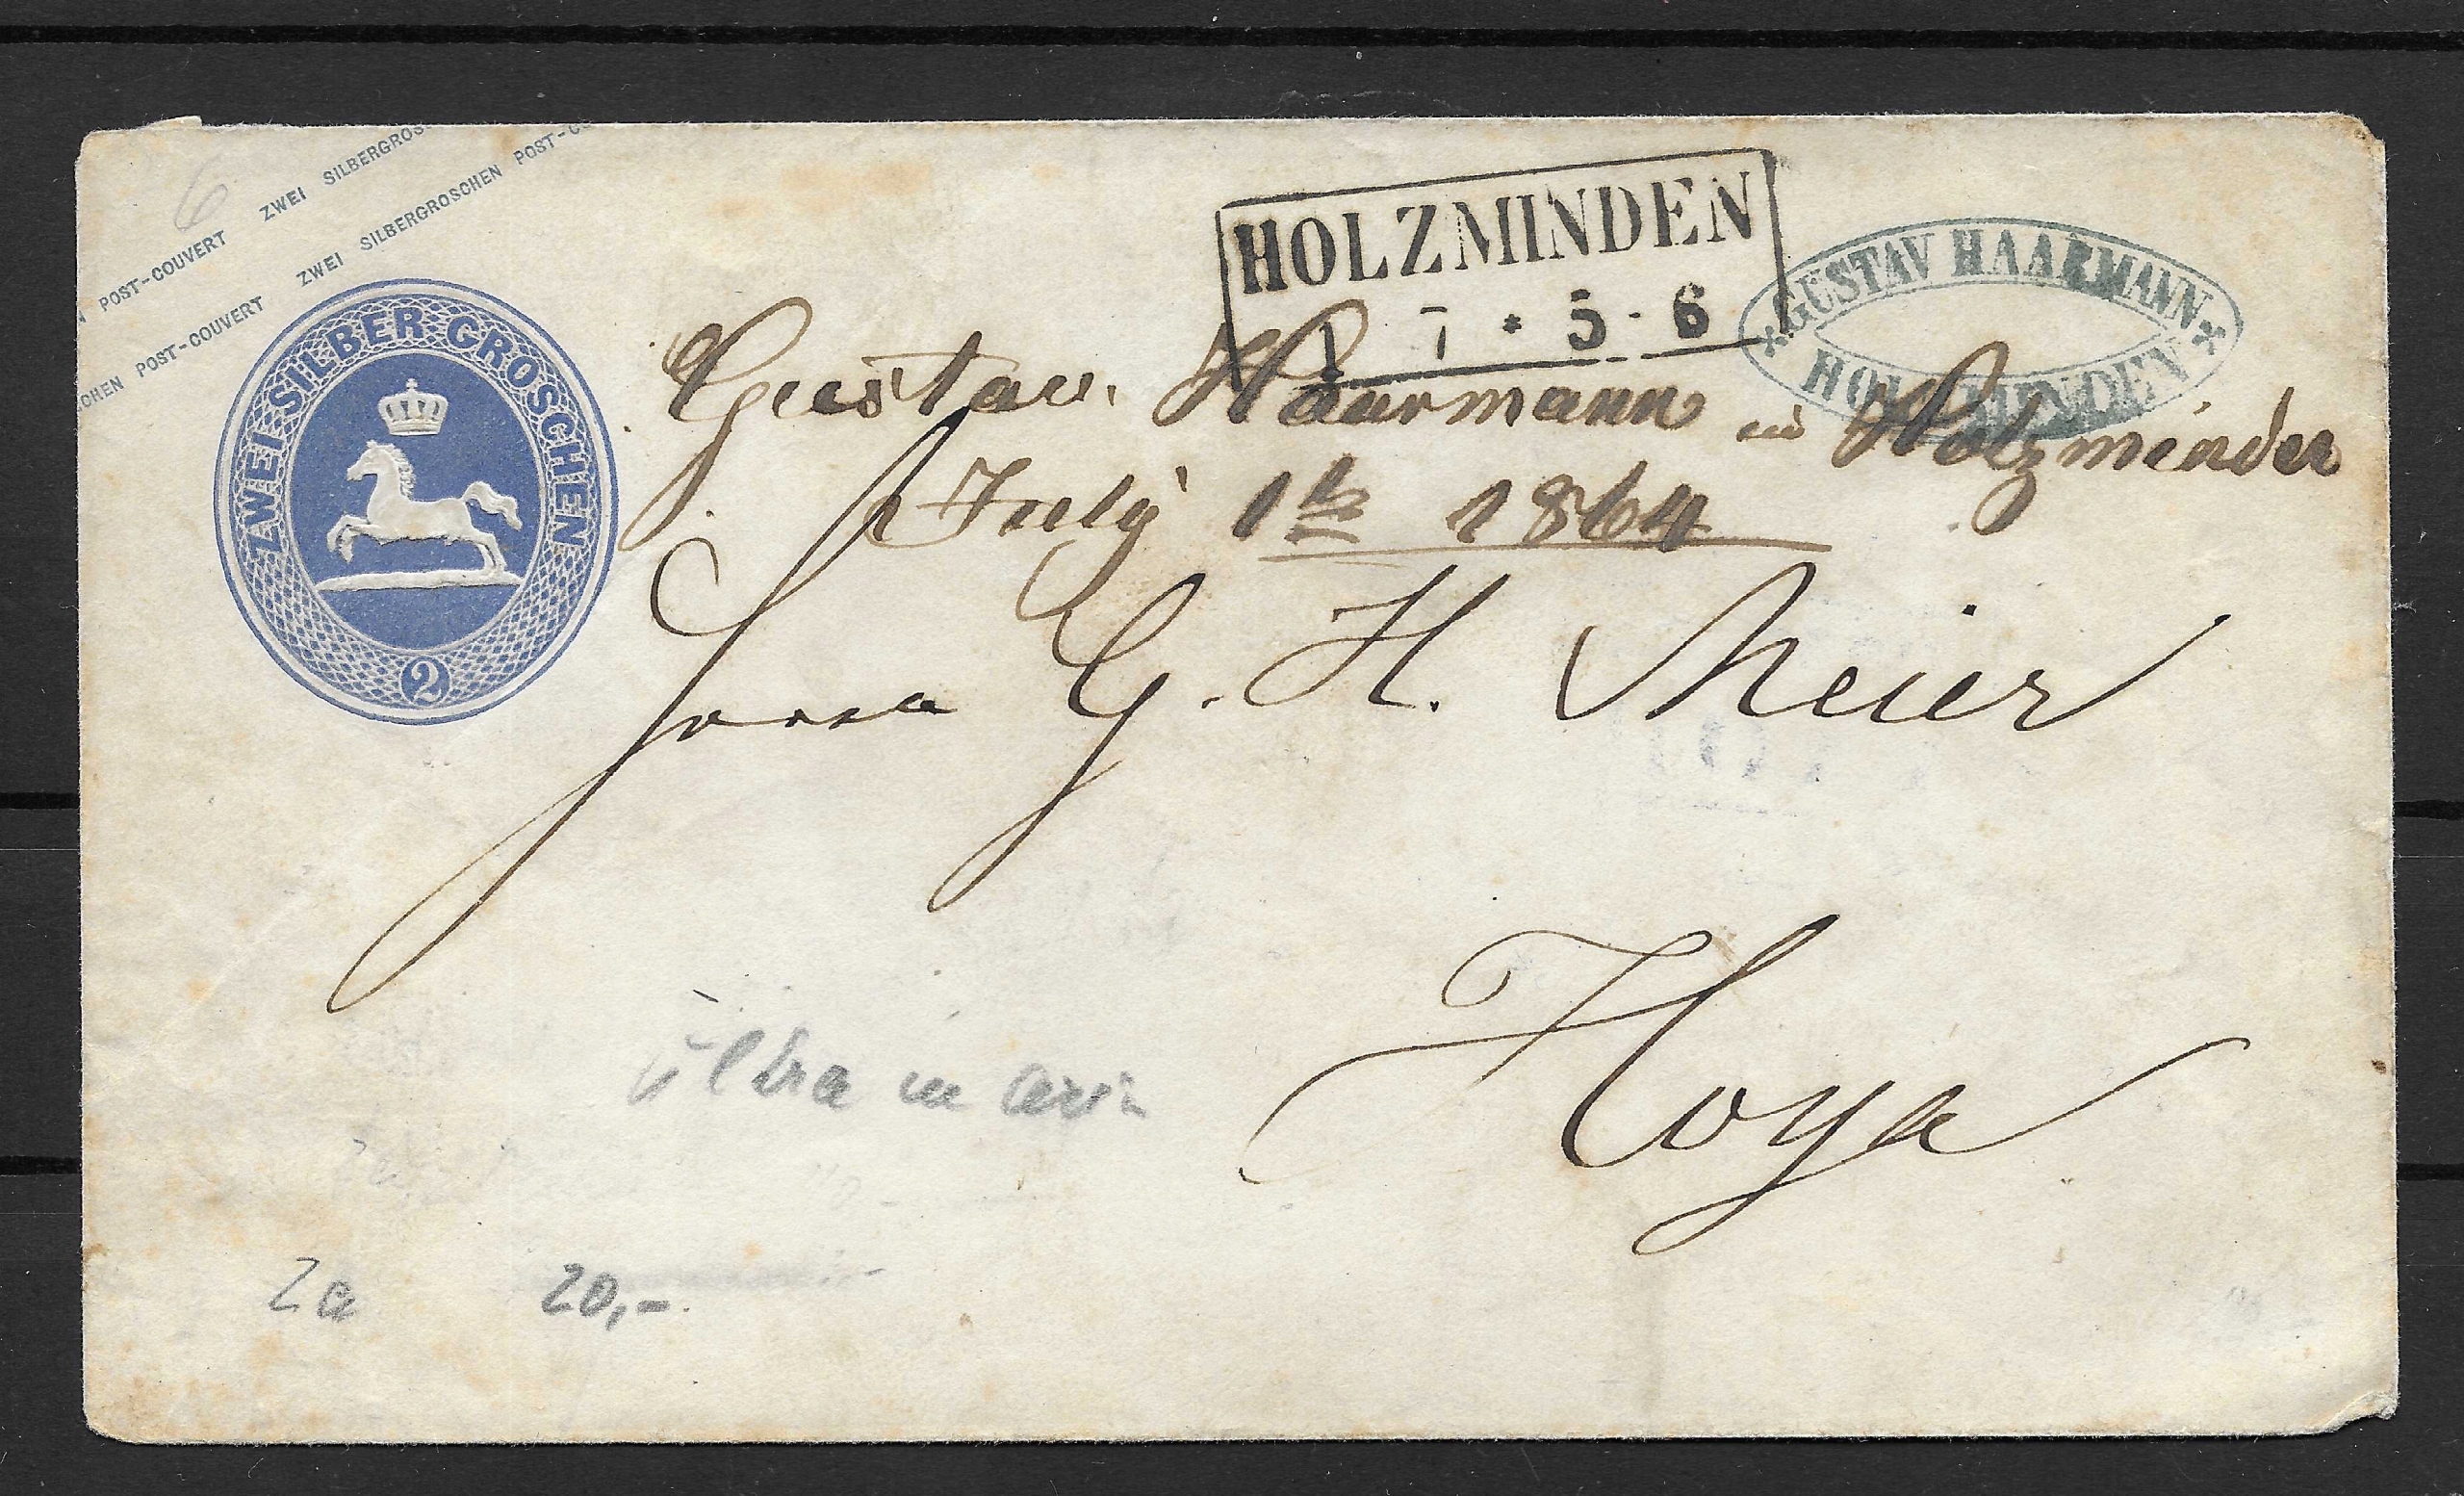 ZWEI SILBERGROS
POST-COUVERT ZWEI SILBERGROSCHEN POST-CO
CHEN POST-COUVERT
6
ZWEI SILBER GROSCHEN
2
HOLZMINDEN
1 7 * 5 - 6
GUSTAV HAARMANN
HOLZMINDEN
Gustav Haarmann in Holzminden
July 1t 1864
Herrn G. H. Meier
Hoya
Ultramarin
2a 20,-